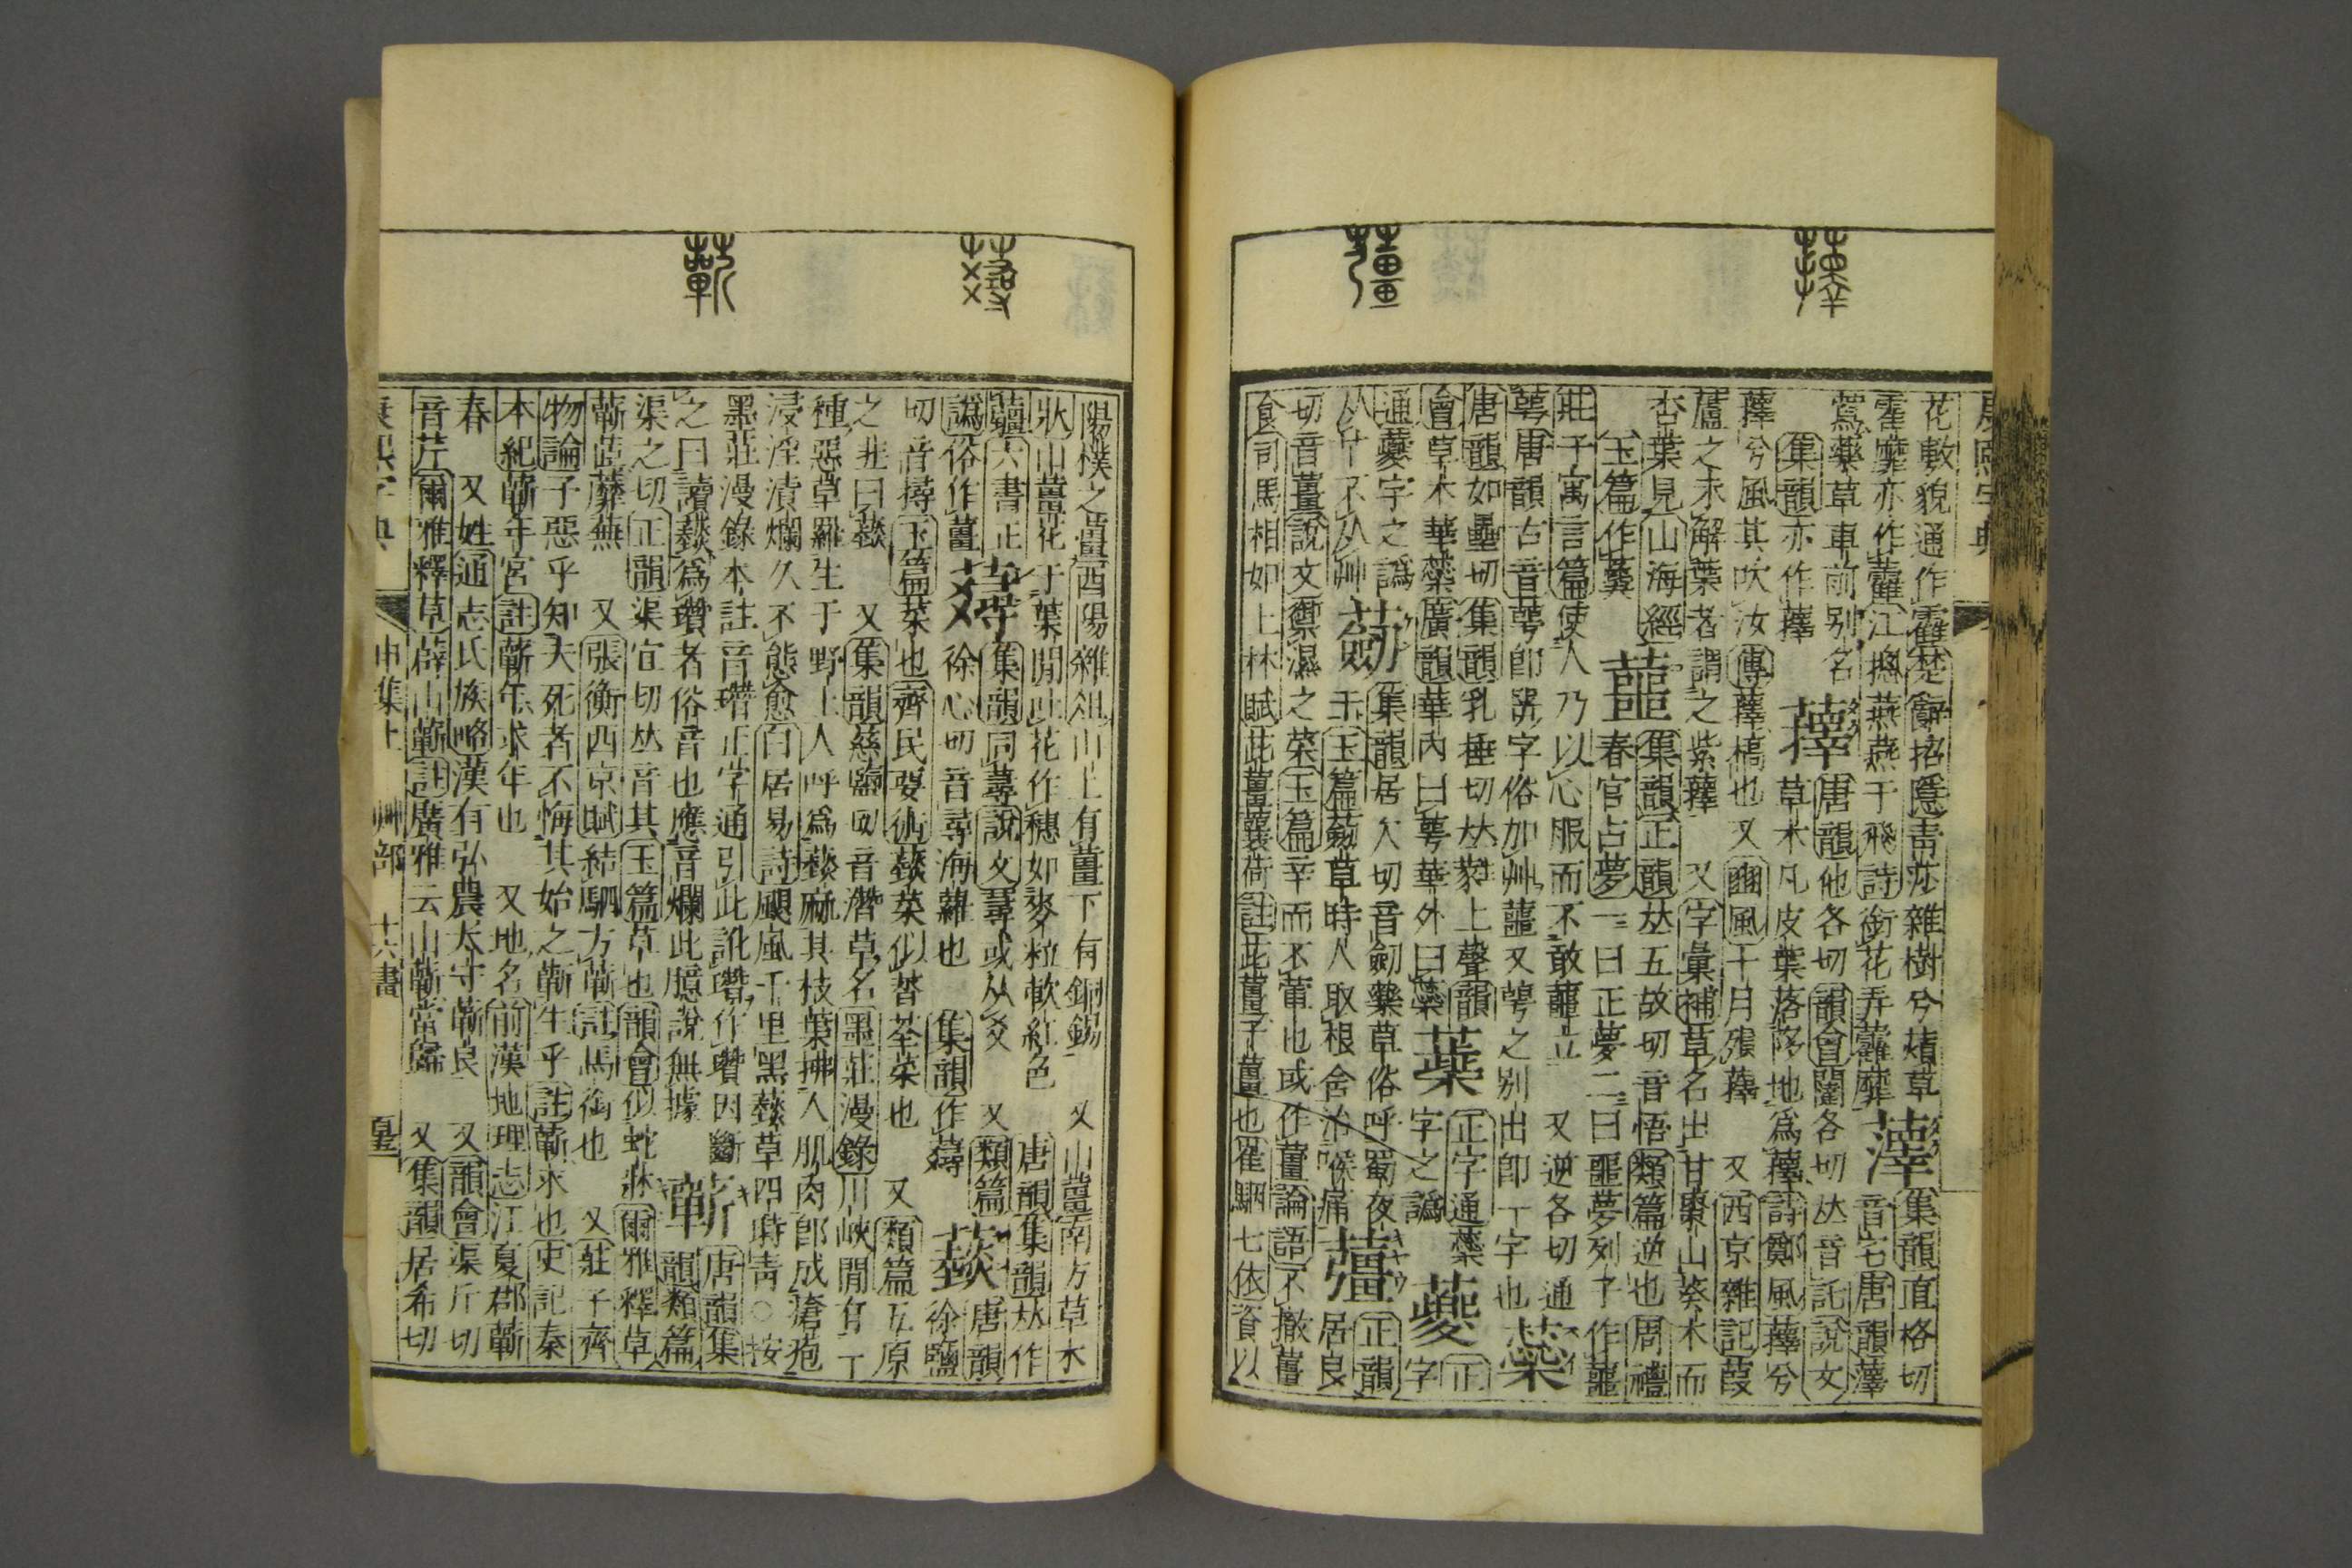 蘀
薑
花敷貌通作靃楚辭招隱靑莎雜樹兮薠草䕪集韻直格切
靃靡亦作虇江摠燕燕于飛詩銜花弄靃靡音宅唐韻䕪
蕮藥草車前別名蘀唐韻他各切韻會闥各切𠀤音託說文
集韻亦作蘀草木凡皮葉落陊地爲蘀詩鄭風蘀兮
蘀兮風其吹汝傳蘀槁也又豳風十月殞蘀又西京雜記葭
蘆之未解葉者謂之紫蘀又字彙補草名出甘棗山葵木而
杏葉見山海經蘁集韻正韻𠀤五故切音悟類篇逆也周禮
玉篇作春官占夢一曰正夢二曰噩夢列子作蘁
莊子寓言篇使人乃以心服而不敢蘁立又逆各切通
萼唐韻古音萼卽咢字俗加艸蘁又萼之別出卽一字也蘂
唐韻如壘切集韻乳捶切𠀤甤上聲韻
會草木華蘂廣韻華內曰萼華外曰蘂正字通蘂字之譌蘷正字
通夔字之譌集韻居欠切音劒藥草俗呼蜀夜
从廾不从艸玉篇草時人取根舍治喉痛薑正韻居良
切音薑說文禦濕之菜玉篇辛而不葷也或作薑論語不撤薑
食司馬相如上林賦茈薑蘘荷註茈薑子薑也翟駰七依資以
蘄
陽樸之薑酉陽雜俎山上有薑下有銅錫又山薑南方草木
狀山薑花于葉閒吐花作穗如麥粒軟紅色唐韻集韻𠀤作
六書正集韻同蕁說文蕁或从爻又類篇唐韻
譌俗作薑徐心切音尋海蘿也集韻作徐鹽
切音撏玉篇菜也齊民要術菜似荅荃菜也又類篇五原
之韭曰又集韻慈鹽切音潛草名墨莊漫錄川峽閒有一
種惡草羅生于野上人呼爲麻其枝葉拂人肌肉卽成瘡疱
浸淫潰爛久不能愈白居易詩颶風千里黑草四時靑○按
墨莊漫錄本註音㬱正字通引此訛㬱作瓚因斷
之曰讀爲瓚者俗音也應音爛此臆說無據蘄唐韻集韻類篇
渠之切正韻渠宜切𠀤音其玉篇草也韻會似蛇牀爾雅釋草
蘄茝蘪蕪又張衡西京賦結駟方蘄註馬銜也又莊子齊
物論子惡乎知夫死者不悔其始之蘄生乎註蘄求也史記秦
本紀蘄年宮註蘄年求年也又地名前漢地理志江夏郡蘄
春又姓通志氏族略漢有弘農太守蘄良又韻會渠斤切
音芹爾雅釋草薜山蘄註廣雅云山蘄當歸又集韻居希切
康熙字典申集上艸部十六畫